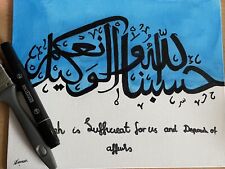 حسبنا الله ونعم الوكيل
is Sufficeat for us and Disposer of
affairs